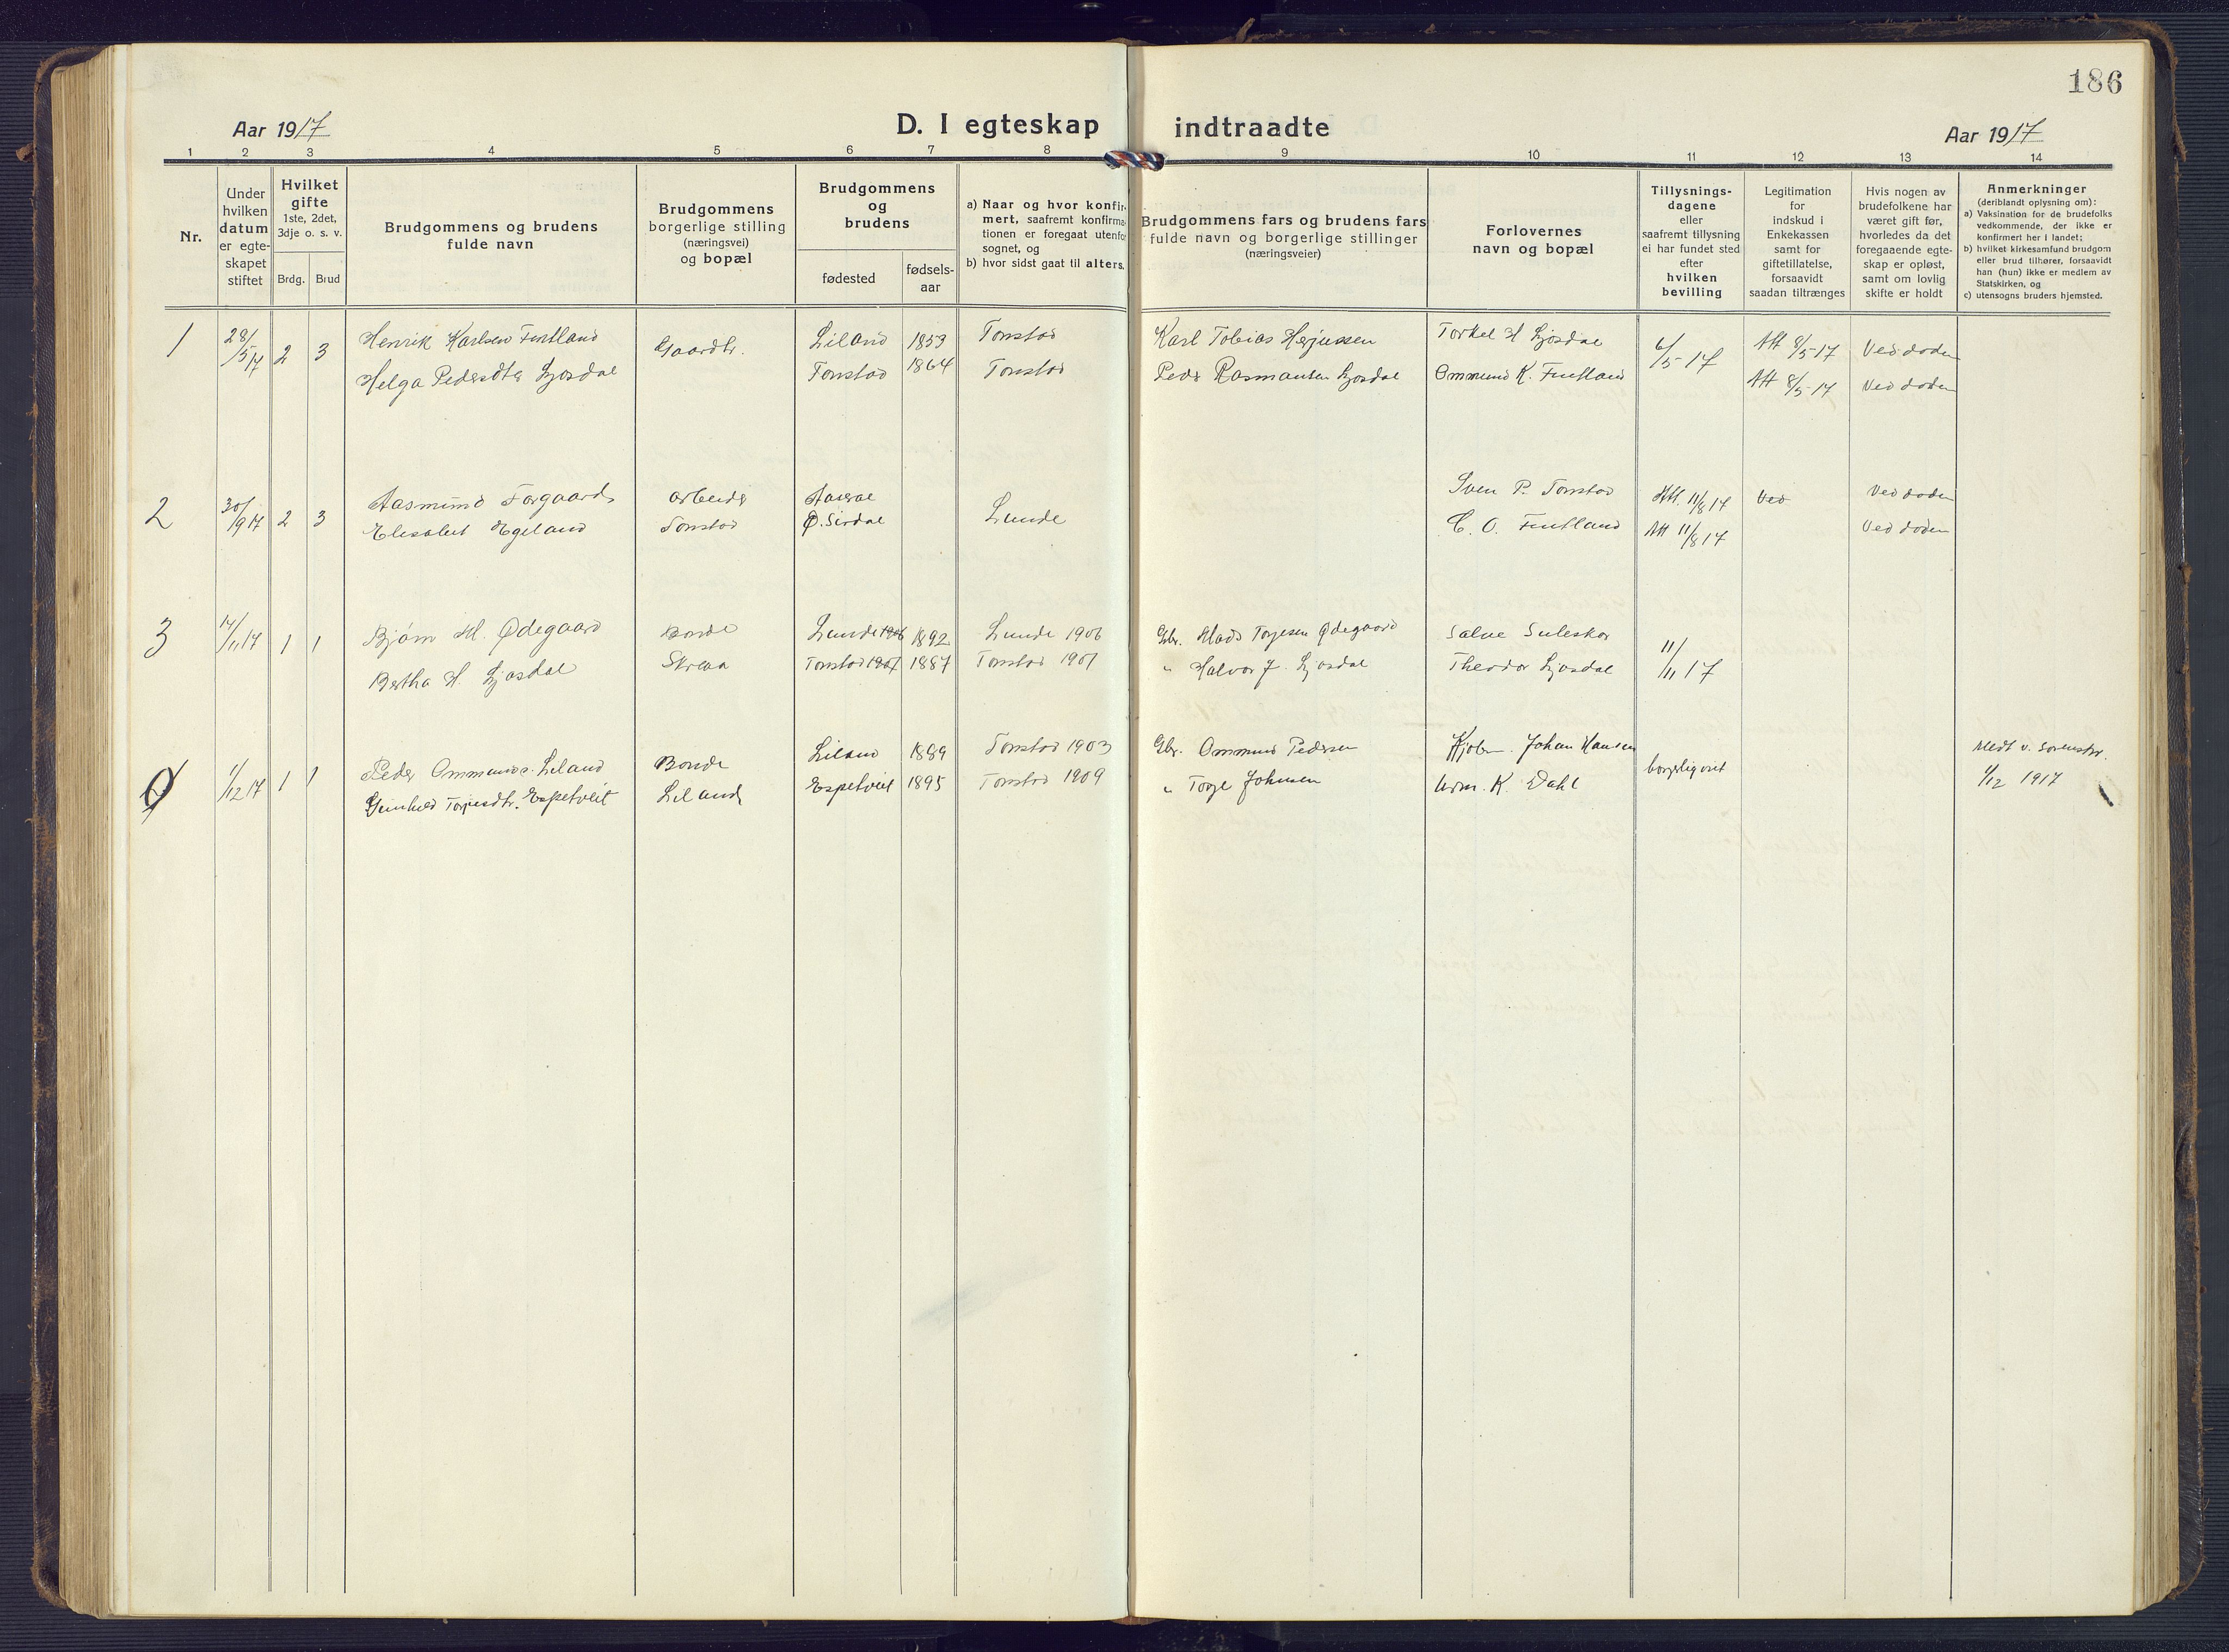 186
Aar 1917
D. I egteskap indtraadte
Aar 1917
1 2 3 4 5 6 7 8 9 10 11 12 13 14
Nr.
Under hvilken datum er egte-skapet stiftet
Hvilket gifte 1ste, 2det, 3dje o. s. v.
Brdg. Brud
Brudgommens og brudens fulde navn
Brudgommens borgerlige stilling (næringsvei) og bopæl
Brudgommens og brudens
fødested
fødsels-aar
a) Naar og hvor konfir-mert, saafremt konfirma-tionen er foregaat utenfo sognet, og
b) hvor sidst gaat til alters.
Brudgommens fars og brudens fars fulde navn og borgerlige stillinger (næringsveier)
Forlovernes navn og bopæl
Tillysnings-dagene eller saafremt tillysning ei har fundet sted efter hvilken bevilling
Legitimation for indskud i Enkekassen samt for giftetillatelse, forsaavidt saadan tiltrænges
Hvis nogen av brudefolkene har været gift før, hvorledes da det foregaaende egte-skap er opløst, samt om lovlig skifte er holdt
Anmerkninger (deriblandt oplysning om):
a) Vaksination for de brudefolks vedkommende, der ikke er konfirmert her i landet;
b) hvilket kirkesamfund brudgom eller brud tilhører, forsaavidt han (hun) ikke er medlem av Statskirken, og
c) utensogns bruders hjemsted.
1 28/5 17 2 3 Henrik Karlsen Fintland Gaardbr. Liland 1853 Tonstad Karl Tobias Herjussen Torkel H Ljosdal 6/5-17 Att 8/5-17 Ved døden
Helga Pedersdtr Ljosdal Tonstad 1864 Tonstad Peder Rasmussen Ljosdal Ommund K. Fintland Att 8/5-17 Ved døden
2 30/9 17 2 3 Aasmund Forgaard arbeider Haverae Sven P. Tonstad Att. 11/8 17 Ved Ved døden
Elisabet Egeland Tonstad Ø. Sirdal Lunde C. O. Fintland Att 11/8 17 Ved døden
3 /11 17 1 1 Bjørn H. Ødegaard Bonde Lunde 1906 1892 Lunde 1906 Gbr. Mads Torjesen Ødegaard Salve Suleskar 11/11 17
Bertha H. Ljosdal Skreaa Tonstad 1901 1887 Tonstad 1901 " Halvor J. Ljosdal Theodor Ljosdal
1/12 17 1 1 Peder Ommunds. Liland Bonde Liland 1889 Tonstad 1903 Gbr. Ommund Pedersen Kjøbm. Johan Hansen borgerlig viet Medt v. sorenskr.
Gunhild Torjusdtr. Espetveit Liland Espetveit 1895 Tonstad 1909 " Torje Johnsen Urm. K. Dahl 1/12 1917